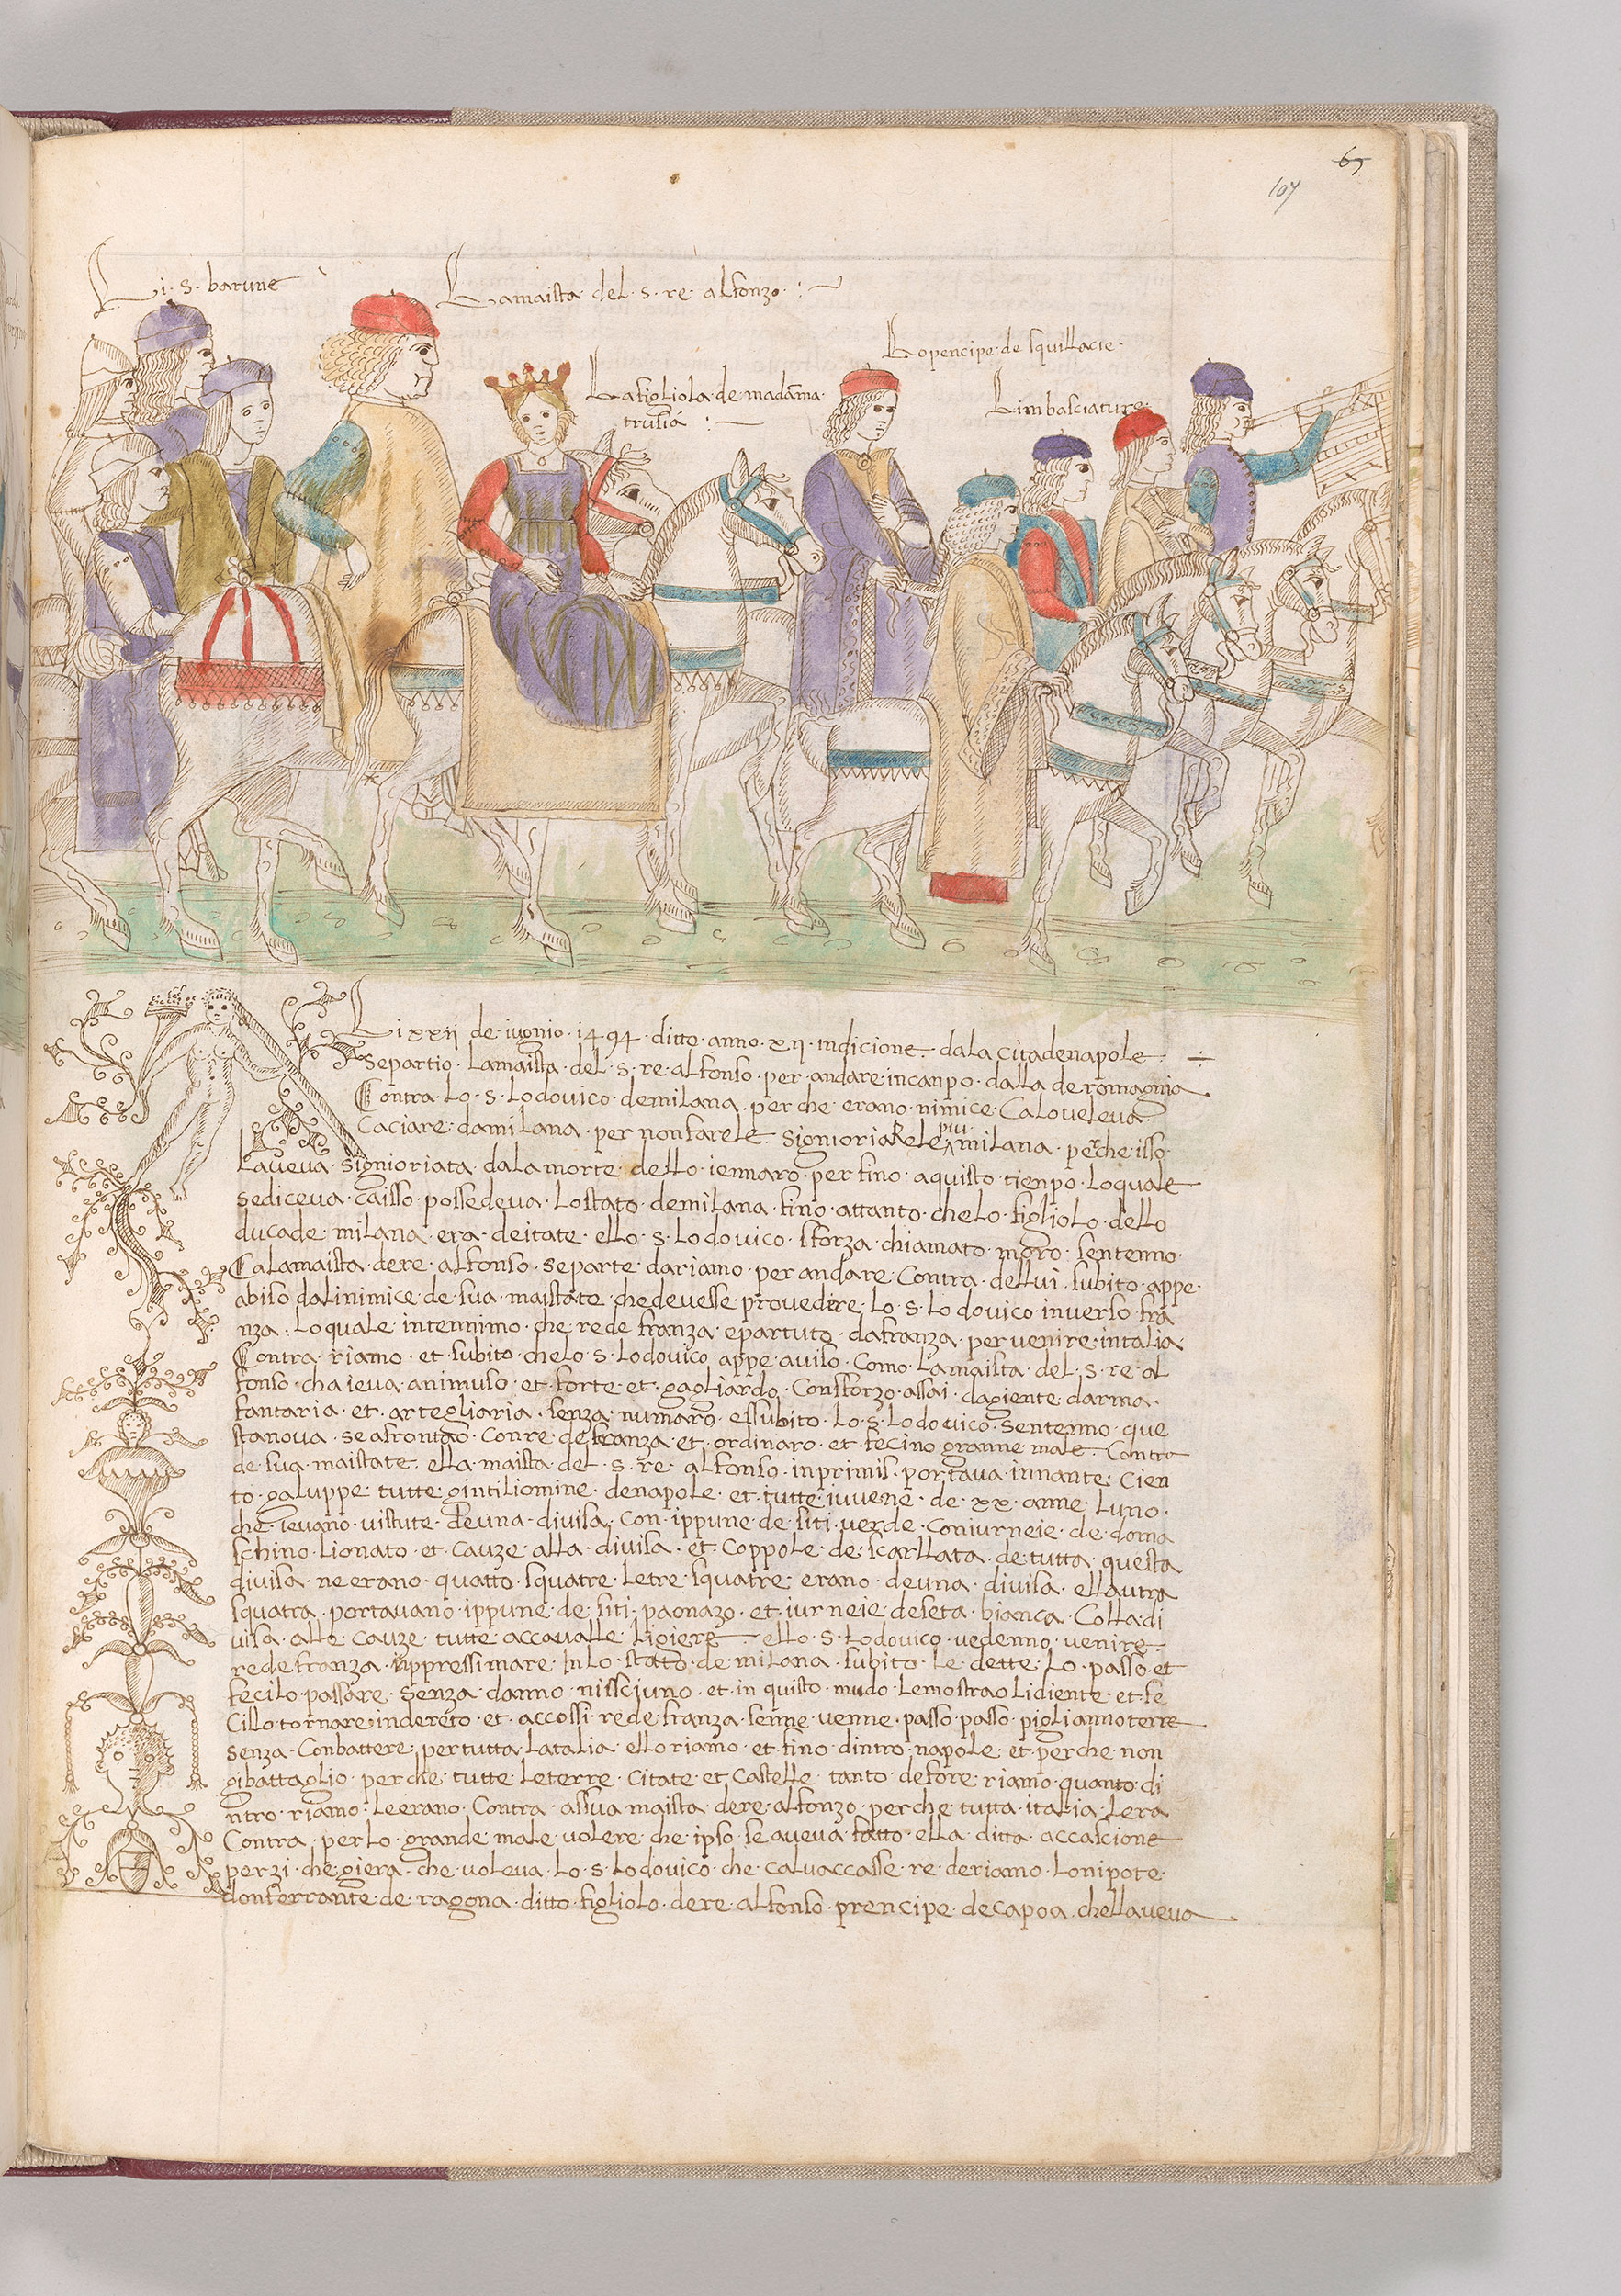 65
107
Li · s · barune
Lamaista · del · s · re · alfonzo · : ~
Lopencipe · de squillacie ·
Lafigliola · de madāma ·
trusia : ~
Limbasciature
Li xxii de · iugnio · 1494 · ditto · anno · xii · indicione · dala citadenapole ·
Separtio · Lamaista · del · s · re · alfonso · per · andare incanpo · dalla de romagnia
Contra · Lo · s · Lodouico · demilana · per che · erano · nimice · Caloueleua ·
Caciare · damilana · per nonfarele · Signioria Rele più milana · perche · isso ·
Laueua · signioriata · dalamorte · dello · iennaro · per fino · aquisto · tienpo · Loquale
sediceua · caisso · possedeua · Lostato · demilana · fino · attanto · chelo · figliolo · dello
ducade · milana · era · deitate · ello · s · Lodouico · sforza · chiamato · moro · sentenno ·
Calamaista · dere · alfonso · separte · dariamo · per andare · Contra · dellui · subito · appe ·
abiso dalinimice · de · sua · maistate · chedeuesse · prouedere · Lo · s · Lodouico · inuerso · fra
nza · Loquale · intennimo · che · rede franza · epartuto · dafranza · per venire · intalia ·
Contra · riamo · et · subito · chelo · s · Lodouico · appe · auiso · Como · Lamaista · del · s · re · al
fonso · chaieua · animuso · et · forte · et · gagliardo · Consforzo · assai · dagiente · darma ·
fantaria · et · artegliaria · senza · numaro · essubito · Lo · s · Lodouico · sentenno · que
stanoua · se afrontao · Conre · de franza · et · ordinaro · et · fecino · granne · male · Contra
de · sua · maistate · ella · maista · del · s · re · alfonso · inprimis · portaua · innante · Cien
to · galuppe · tutte · gintiliomine · denapole · et · tutte · iuuene · de · xx · anne · Luno ·
che · ieuano · vistute · deuna · diuisa · con · ippune · de · siti · verde · Coniurneie · de · doma
schino · Lionato · et · Cauze · alla · diuisa · et · Coppole · de · scarllata · de tutta · questa
diuisa · ne erano · quatto · squatre · Letre · squatre · erano · deuna · diuisa · ellautra
squatra · portauano · ippune · de · siti · paonazo · et · iurneie deseta · bianca · Colla · di
uisa · alle · Cauze · tutte · accaualle · Ligiere · ello · s · Lodouico · vedenno · venire
rede franza · appressimare · in Lo · stato · de milana · subito · Le · dette · Lo · passo · et
fecilo · passare · senza · danno · nissciuno · et · in quisto · mudo · Lemostrao Lidiente · et · fe
Cillo · tornare · indereto · et · accossi · rede franza · senne · venne · passo · passo · pigliannoterre
senza · Conbattere · per tutta · Latalia · elloriamo · et · fino · dintro · napole · et · perche · non
gibattaglio · perche · tutte · Leterre · citate · et Castelle · tanto · defore · riamo · quanto · di
ntro · riamo · Leerano · Contra · assua maista · dere · alfonzo · perche · tutta · italia · Lera
Contra · perlo · grande · male · volere · che · ipso · se aueua · fatto · ella · ditta · accascione
perzi · che giera · che · voleua · Lo · s · Lodouico · che · caluaccasse · re · deriamo · Lonipote ·
donferrante · de · ragona · ditto · figliolo · dere · alfonso · prencipe · decapoa · chellaueua